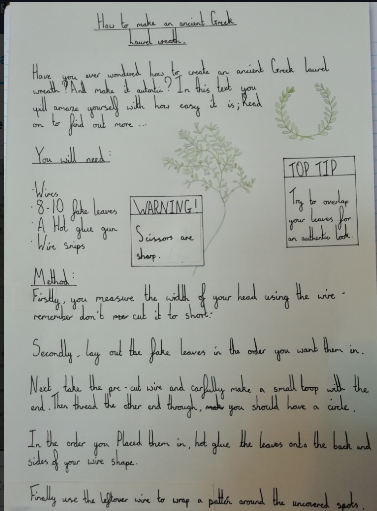 How to make an ancient Greek
laurel wreath.
Have you ever wondered how to create an ancient Greek laurel
wreath? And make it autentic? In this text you
will amaze yourself with how easy it is; Read
on to find out more ...
You will need:
TOP TIP
Try to overlap
your leaves for
an authentic look.
· Wires
· 8-10 fake leaves
· A Hot glue gun
· Wire snips
WARNING!
Scissors are
sharp.
Method:
Firstly, you measure the width of your head using the wire -
remember don't cut it to short.
Secondly, lay out the fake leaves in the order you want them in.
Next take the pre-cut wire and carfully make a small loop with the
end. Then thread the other end through, you should have a circle.
In the order you Placed them in, hot glue the leaves onto the back and
sides of your wire shape.
Finally use the leftover wire to wrap a around the uncovered spots.